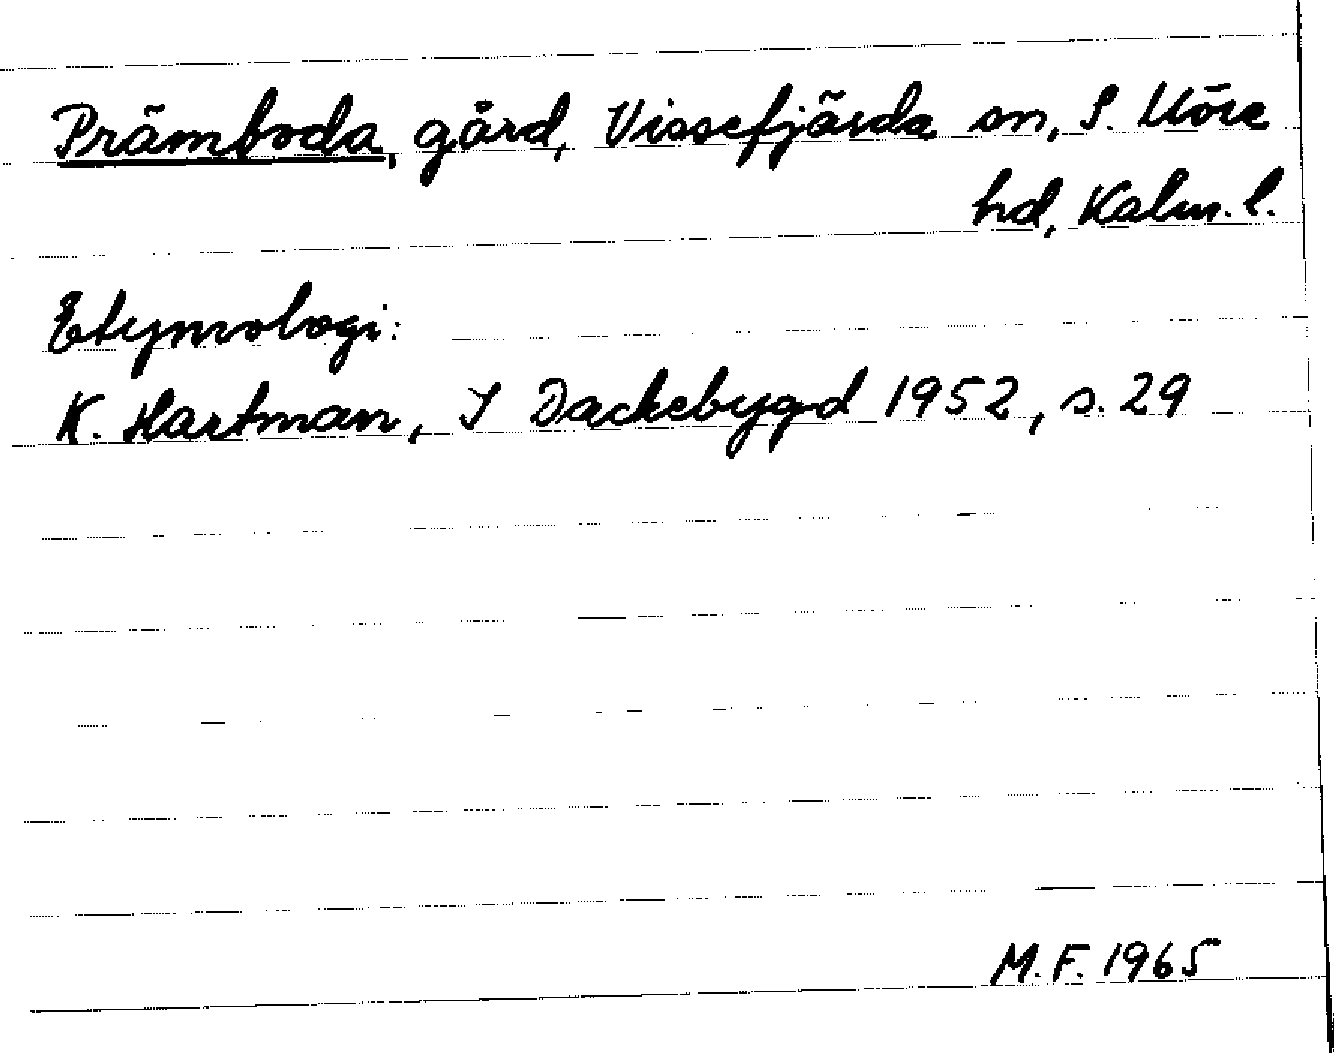 Prämboda, gård, Vissefjärda sn, S. Möre
hd, Kalm. l.
Etymologi:
K. Hartman, I Dackebygd 1952, s. 29
M.F. 1965